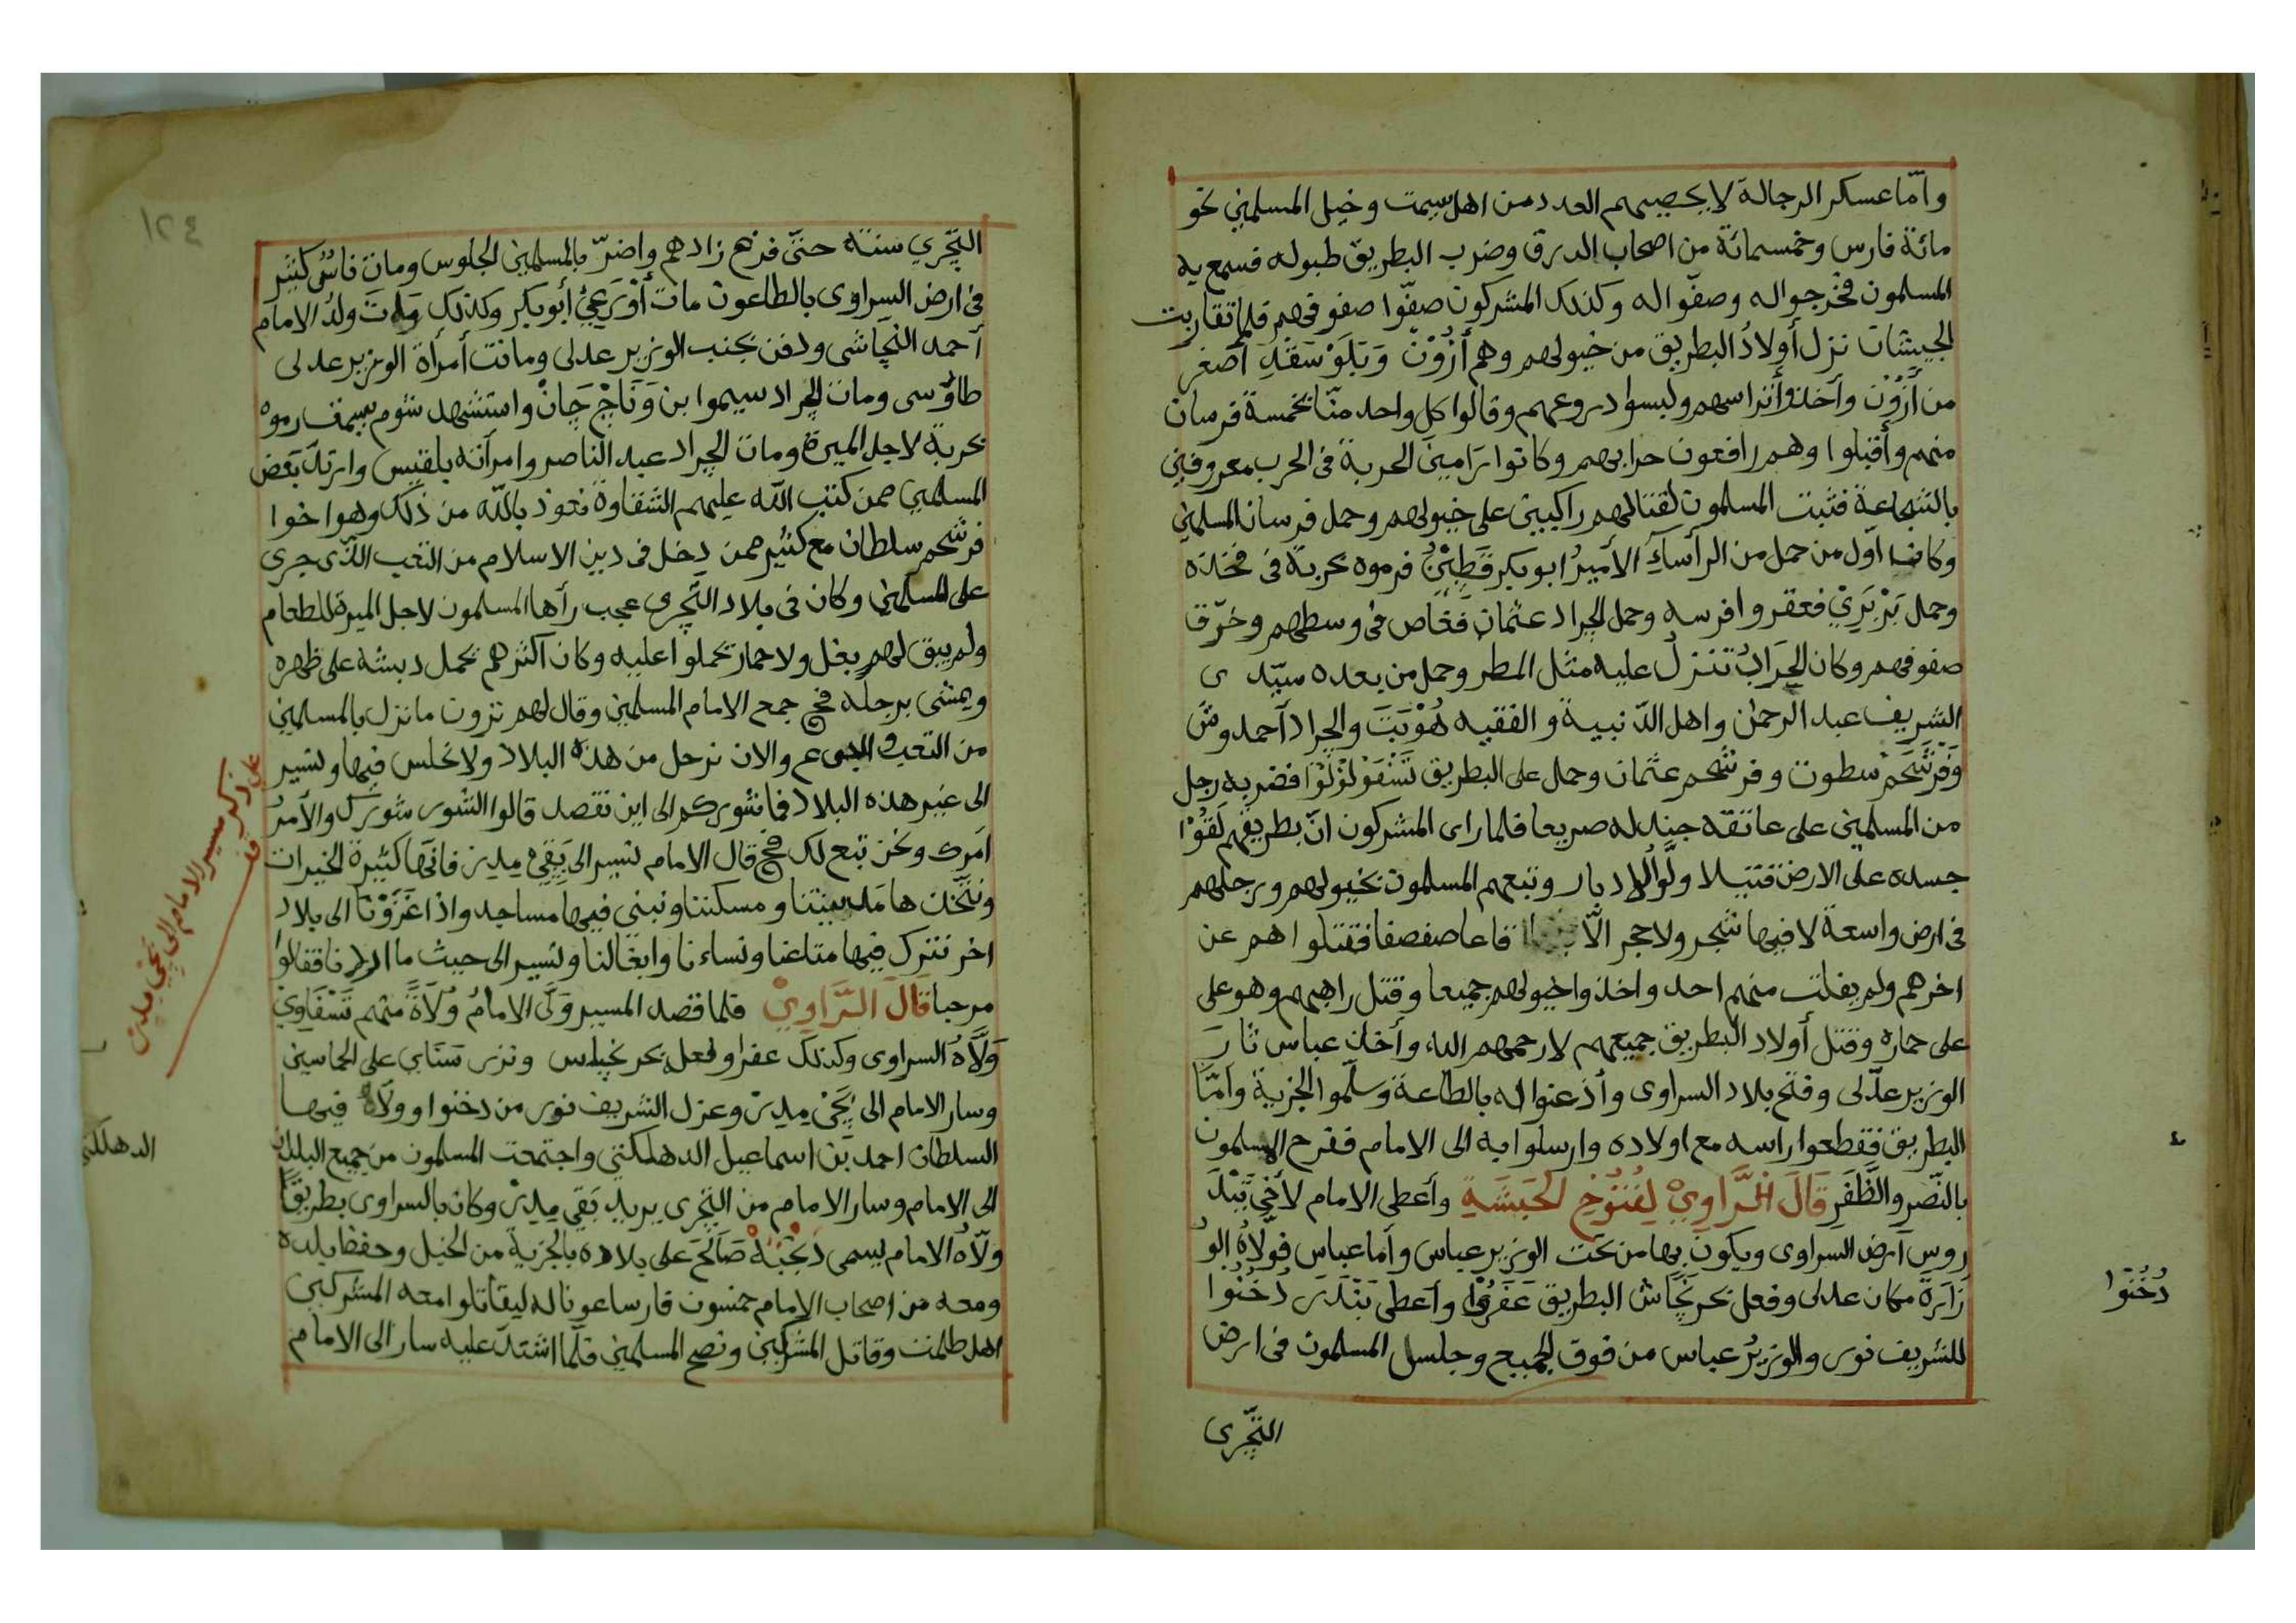 وامّا عسكر الرجالة لا يحصيهم العدد من اهل سيمت وخيل المسلمين نحو
مائة فارس وخمسمائة من اصحاب الدرق وضرب البطريق طبوله فسمع به
المسلمون فخرجوا له وصفّوا له وكذلك المشركون صفّوا صفوفهم فلما تقاربت
الجيشان نزل أولادُ البطريق من خيولهم وهم أزُوْن وَتَلَوْ سَفَدِ أصغر
من أَزُوْن وأخذوا أتراسهم ولبسوا دروعهم وقالوا كل واحد منّا بخمسة فرسان
منهم وأقبلوا وهم رافعون حرابهم وكانوا رَامِينَ الحربة فى الحرب معروفين
بالشجاعة فثبت المسلمون لقتالهم راكبين على خيولهم وحمل فرسان المسلمين
وكان اوّل من حمل من الرأسآءِ الأميرُ ابو بكر قَطِيْنُ فرموه بحربة فى فخذه
وحمل بَرْبَرِيْ فعقروا فرسه وحمل الجراد عثمان فغاص فى وسطهم وخرّق
صفوفهم وكان الحِرَابُ تنزل عليه مثل المطر وحمل من بعده سيّدى
الشريف عبد الرحمن واهل الدّنبية والفقيه هُوْبَتَ والجراد آحمدوش
وَفَرْشَحَمْ سطوت وفرشحم عثمان وحمل على البطريق تَسْفَوْ لُوْلُوْا فضربه رجل
من المسلمين على عاتقه جندله صريعا فلما راى المشركون انّ بطريقهم لَقَوْا
جسده على الارض قتيلا ولّوا الادبار وتبعهم المسلمون بخيولهم ورجلهم
فى ارض واسعة لا فيها شجر ولا حجر الّا قاعا صفصفا فقتلوا هم عن
اخرهم ولم يفلت منهم احد واخذوا خيولهم جميعا وقتل راهبهم وهو على
على حماره وقتل أولاد البطريق جميعهم لا رحمهم الله وأخذ عباس ثارَ
الوزير عدّلى وفتح بلاد السراوى وأذعنوا له بالطاعة وسلّموا الجزية وأمّا
البطريق فقطعوا راسه مع اولاده وارسلوا به الى الامام ففرح المسلمون
بالنّصر والظَّفَر قَالَ الرَّاوِيْ لِفُتُوْحِ الحَبَشَةِ وأعطى الامام لأخي تَبْدَلَ
روس أرض السراوى ويكون بها من تحت الوزير عباس وأما عباس فولّاهُ الوُ
زَارَةَ مكان عدلى وفعل بحر نَجَّاش البطريق عَفَرُوْا وأعطى بَنْدَرَ دُخْنُوا
للشريف نور والوزيرُ عباس من فوق الجميع وجلس المسلمون فى ارض
التّجرى
دُخُنُوا
١٢٤
التِّجْرِي سنة حتى فرغ زادهم واضرّ بالمسلمين الجلوس ومات ناسٌ كثير
فى ارض السراوى بالطاعون مات أُوْرَعِيْ أبو بكر وكذلك مات ولدُ الامام
آحمد النّجاشى ودفن بجنب الوزير عدلى وماتت أمرأة الوزير عدلى
طاؤسى ومات الجراد سيموا بن وَنَاجْ جَانْ واستشهد شوم بسيمت رموه
بحربة لاجل الميرة ومات الجراد عبد الناصر وامرأته بلقيس وارتدّ بَعض
المسلمين ممن كتب الله عليهم الشقاوة نعوذ بالله من ذلك وهو اخوا
فرشحم سلطان مع كثير ممن دخل فى دين الاسلام من التعب الذى جرى
على المسلمين وكان فى بلاد التّجرى عجب رأها المسلمون لاجل الميرة للطعام
ولم يبق لهم بغل ولا حمار تحملوا عليه وكان أكثرهم يحمل دبشه على ظهره
ويمشى برجله فح جمع الامام المسلمين وقال لهم ترون ما نزل بالمسلمين
من التعب والجوع والان نرحل من هذه البلاد ولا نجلس فيها ونسير
الى غير هذه البلاد فما شوركم الى اين نقصد قالوا الشور شورك والأمرُ
أمرك ونحن تبع لك فح قال الامام نسير الى بَقِيْ مِدِر فانّها كثيرة الخيرات
ونتّخذها مَدينتنا ومسكننا ونبنى فيها مساجد واذا غَزَوْنا الى بلاد
اخر نترك فيها متاعنا ونساءنا وابغالنا ونسير الى حيث ما اردنا فقالوا
مرحبا قَالَ الرَّاوِيْ فلما قصد المسير وَلّى الامامُ وُلَاةً منهم تَسْفَاوِيْ
وَلّاهُ السراوى وكذلك عفرا وفعل بحر نجاس ونزر سَنَاي على الحماسين
وسار الامام الى بَجَيْ مِدِرْ وعزل الشريف نور من دخنوا وولّاهُ فيها
السلطان احمد بَن اسماعيل الدهلكتى واجتمعت المسلمون من جميع البلدان
الى الامام وسار الامام من التّجرى يريد بَقِى مِدِرْ وكان بالسراوى بطريقًا
ولّاهُ الامام يسمى دَجْبَنَهْ صَالَحَ على بلاده بالجزية من الخيل وحفظ بلده
ومعه من اصحاب الامام خمسون فارسا عونا له ليقاتلوا معه المشركين
اهل طلمت وقاتل المشركين ونصح المسلمين فلمّا اشتدّ عليه سار الى الامام
على ذكر مسير الامام الى بَجَيْ مِدِر
قف
الدهلكى